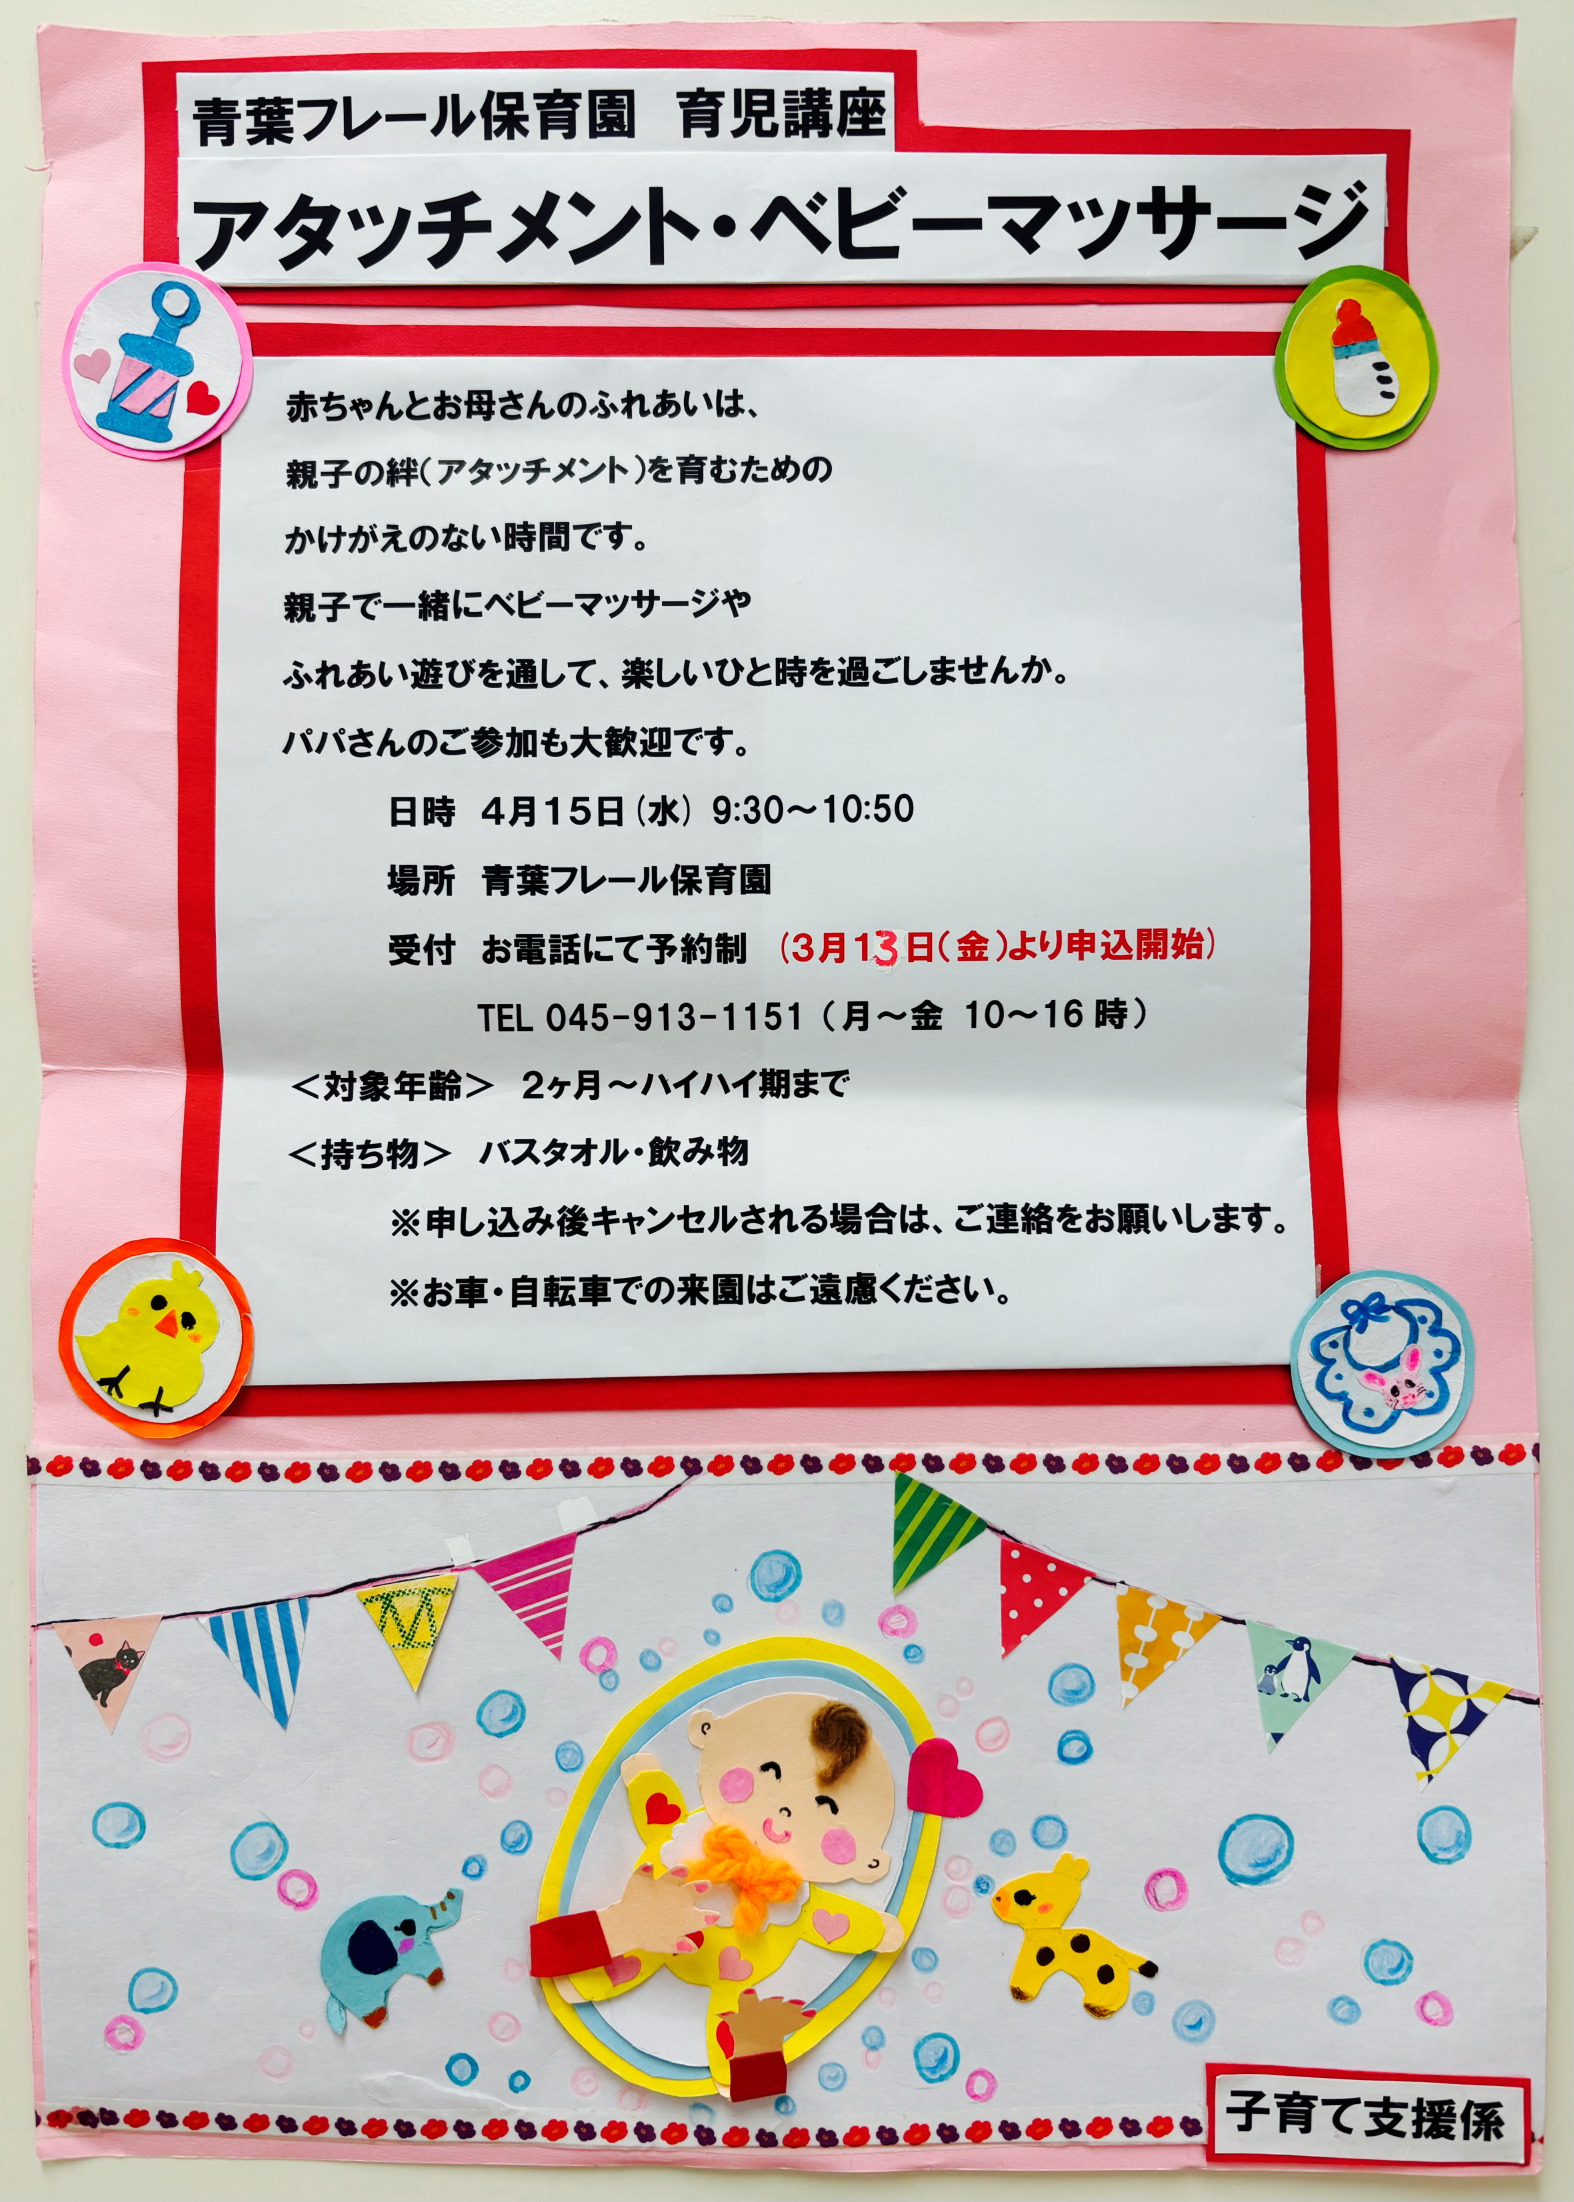 青葉フレール保育園　育児講座
アタッチメント・ベビーマッサージ
赤ちゃんとお母さんのふれあいは、
親子の絆(アタッチメント)を育むための
かけがえのない時間です。
親子で一緒にベビーマッサージや
ふれあい遊びを通して、楽しいひと時を過ごしませんか。
パパさんのご参加も大歓迎です。
日時　４月１５日(水) 9:30～10:50
場所　青葉フレール保育園
受付　お電話にて予約制　(３月１３日(金)より申込開始)
TEL 045-913-1151 (月～金 10～16時)
＜対象年齢＞　２ヶ月～ハイハイ期まで
＜持ち物＞　バスタオル・飲み物
※申し込み後キャンセルされる場合は、ご連絡をお願いします。
※お車・自転車での来園はご遠慮ください。
子育て支援係